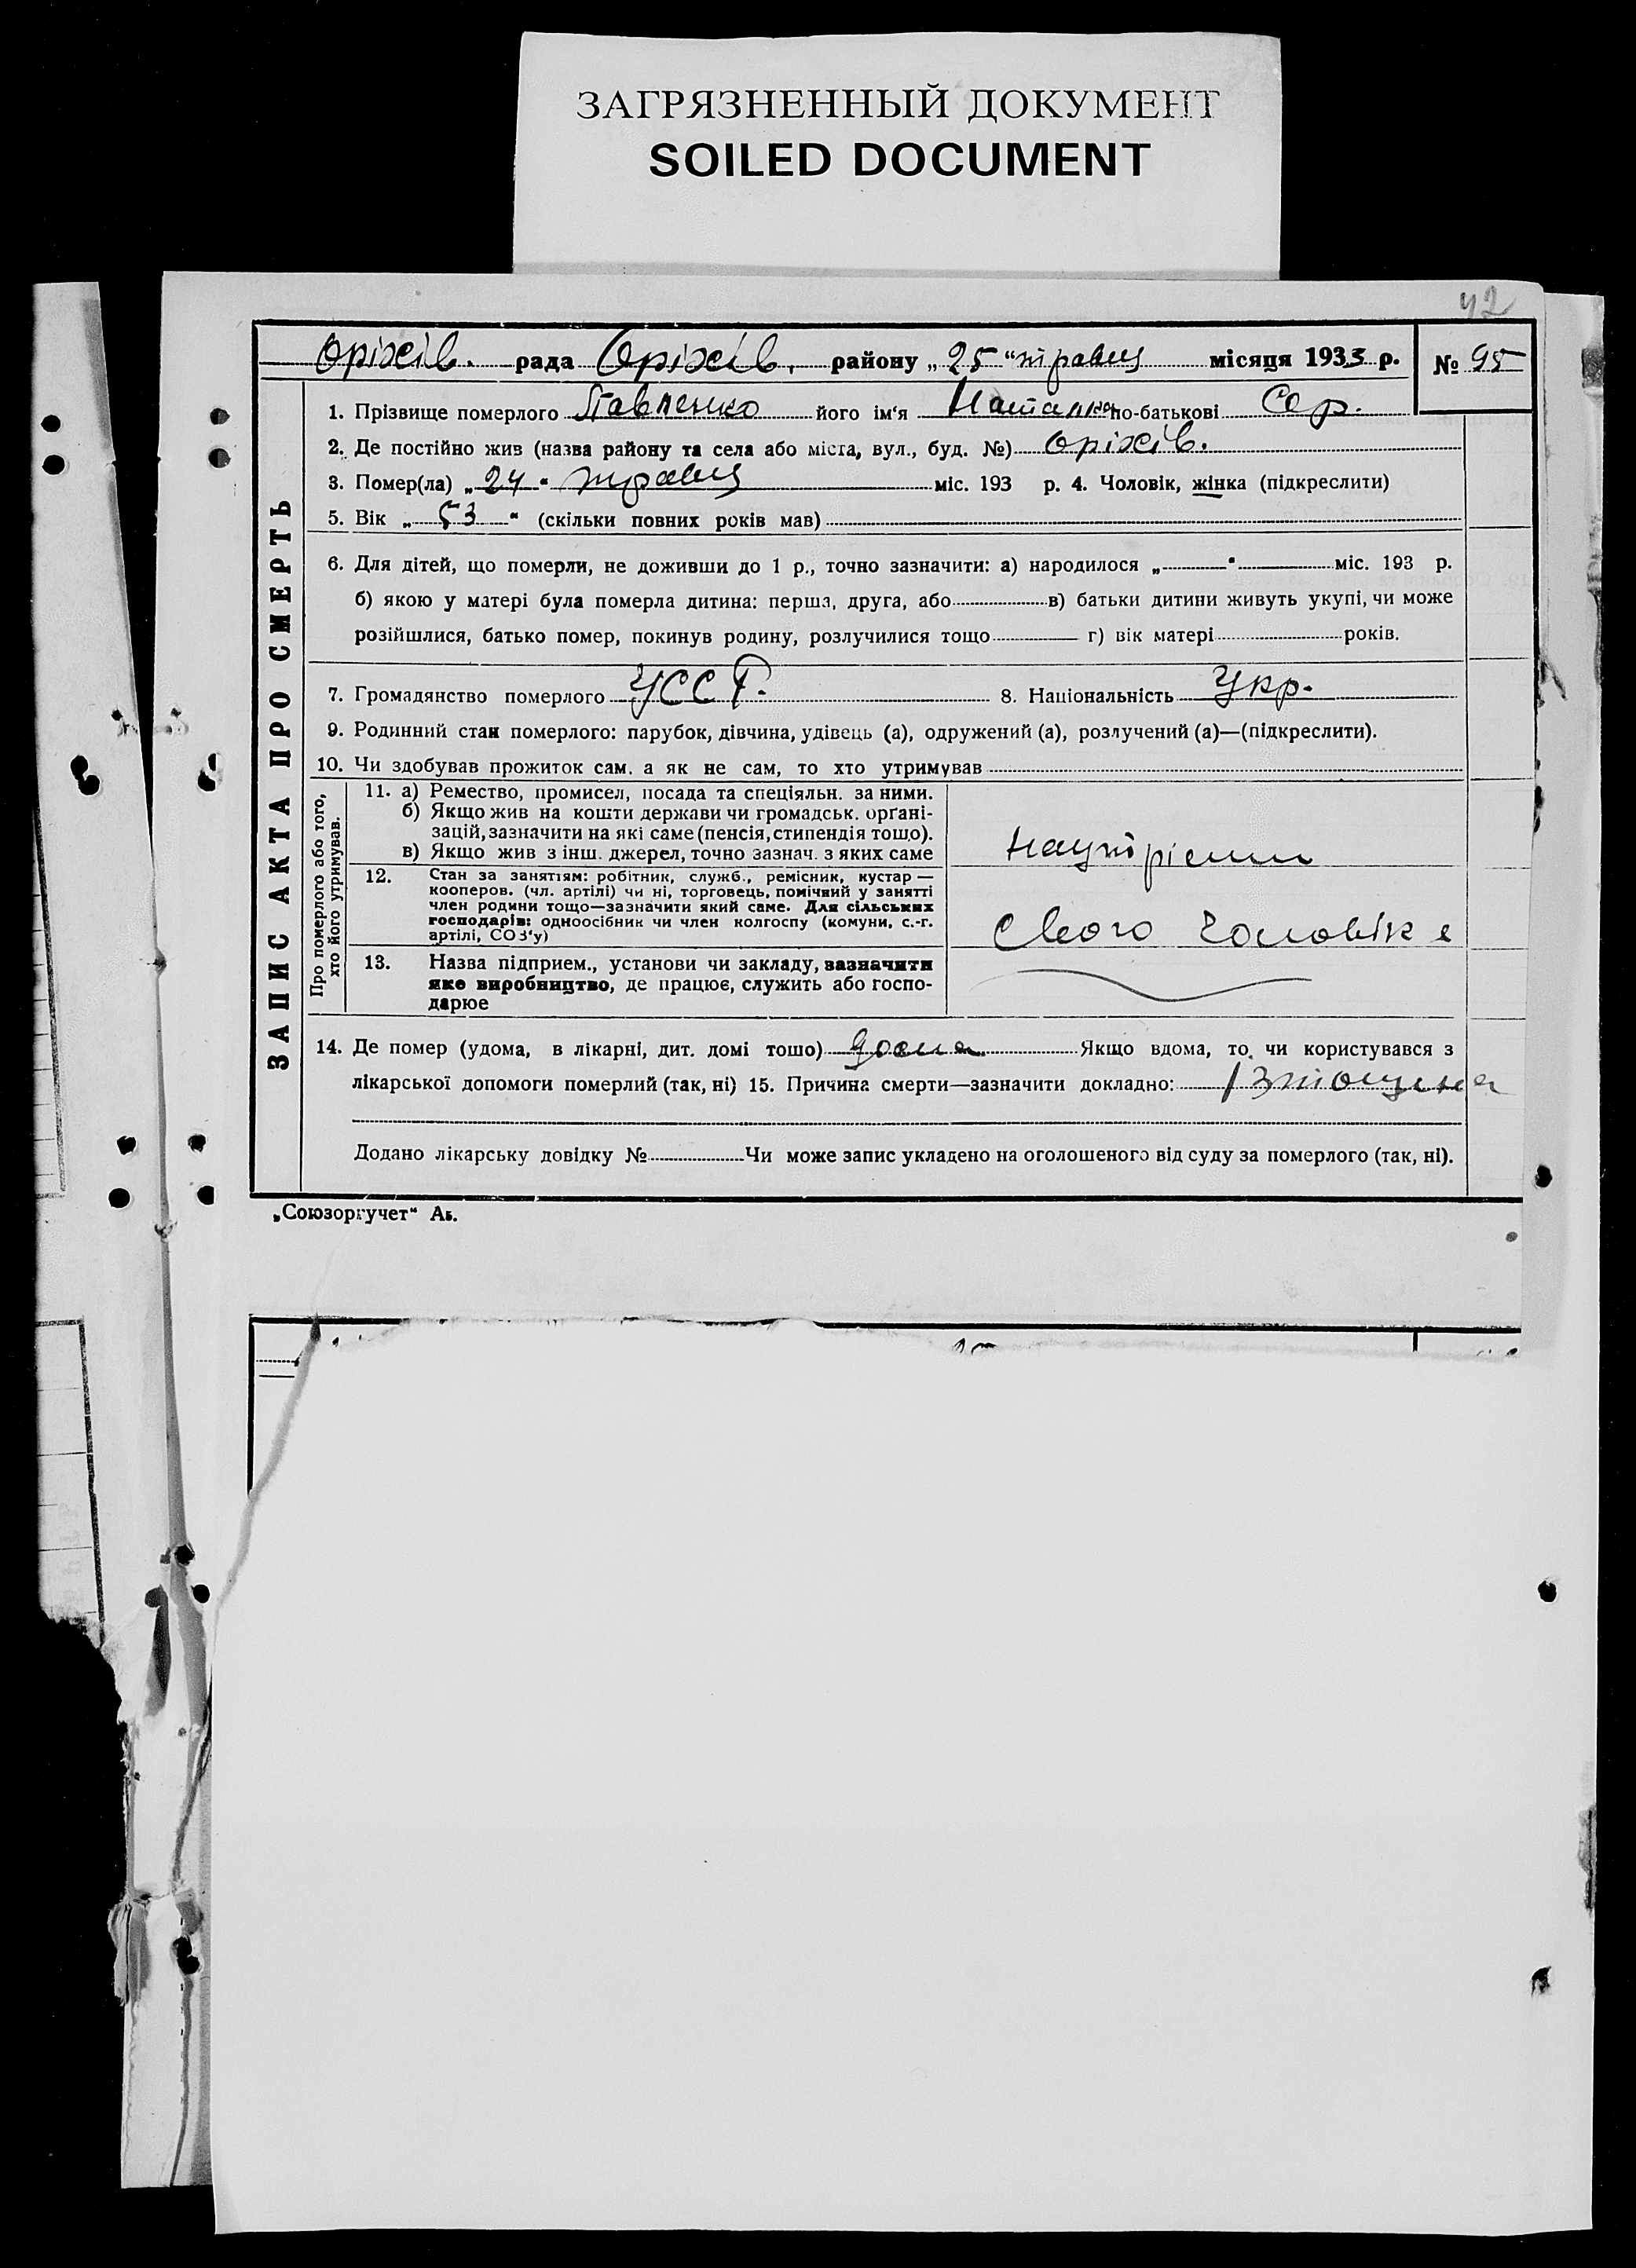 ЗАГРЯЗНЕННЫЙ ДОКУМЕНТ
SOILED DOCUMENT
42
Оріхів. рада Оріхів. району „25“ травня місяця 1933 р. № 95
ЗАПИС АКТА ПРО СМЕРТЬ
1. Прізвище померлого Павленко його ім'я Наталка по-батькові Сер.
2. Де постійно жив (назва району та села або міста, вул., буд. №) Оріхів.
3. Помер(ла) „24“ травня міс. 193 р. 4. Чоловік, жінка (підкреслити)
5. Вік „53“ (скільки повних років мав)
6. Для дітей, що померли, не доживши до 1 р., точно зазначити: а) народилося „ “ міс. 193 р.
б) якою у матері була померла дитина: перша, друга, або в) батьки дитини живуть укупі, чи може
розійшлися, батько помер, покинув родину, розлучилися тощо г) вік матері років.
7. Громадянство померлого УССР. 8. Національність Укр.
9. Родинний стан померлого: парубок, дівчина, удівець (а), одружений (а), розлучений (а)—(підкреслити).
10. Чи здобував прожиток сам, а як не сам, то хто утримував
Про померлого або того,
хто його утримував.
11. а) Ремество, промисел, посада та спеціяльн. за ними.
б) Якщо жив на кошти держави чи громадськ. орґані-
зацій, зазначити на які саме (пенсія, стипендія тощо).
в) Якщо жив з інш. джерел, точно зазнач. з яких саме
на
12. Стан за заняттям: робітник, служб., ремісник, кустар —
кооперов. (чл. артілі) чи ні, торговець, помічний у занятті
член родини тощо—зазначити який саме. Для сільських
господарів: одноосібник чи член колгоспу (комуни, с.-г.
артілі, СОЗ'у)
свого чоловіка
13. Назва підприєм., установи чи закладу, зазначити
яке виробництво, де працює, служить або госпо-
дарює
14. Де помер (удома, в лікарні, дит. домі тощо) дома Якщо вдома, то чи користувався з
лікарської допомоги померлий (так, ні) 15. Причина смерти—зазначити докладно:Ізтощена
Додано лікарську довідку № Чи може запис укладено на оголошеного від суду за померлого (так, ні).
„Союзоргучет“ Аб.